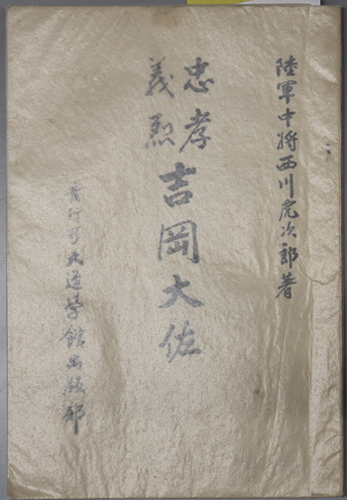 陸軍中将西川虎次郎著
忠孝
義烈
吉岡大佐
発行所北道学館出版部